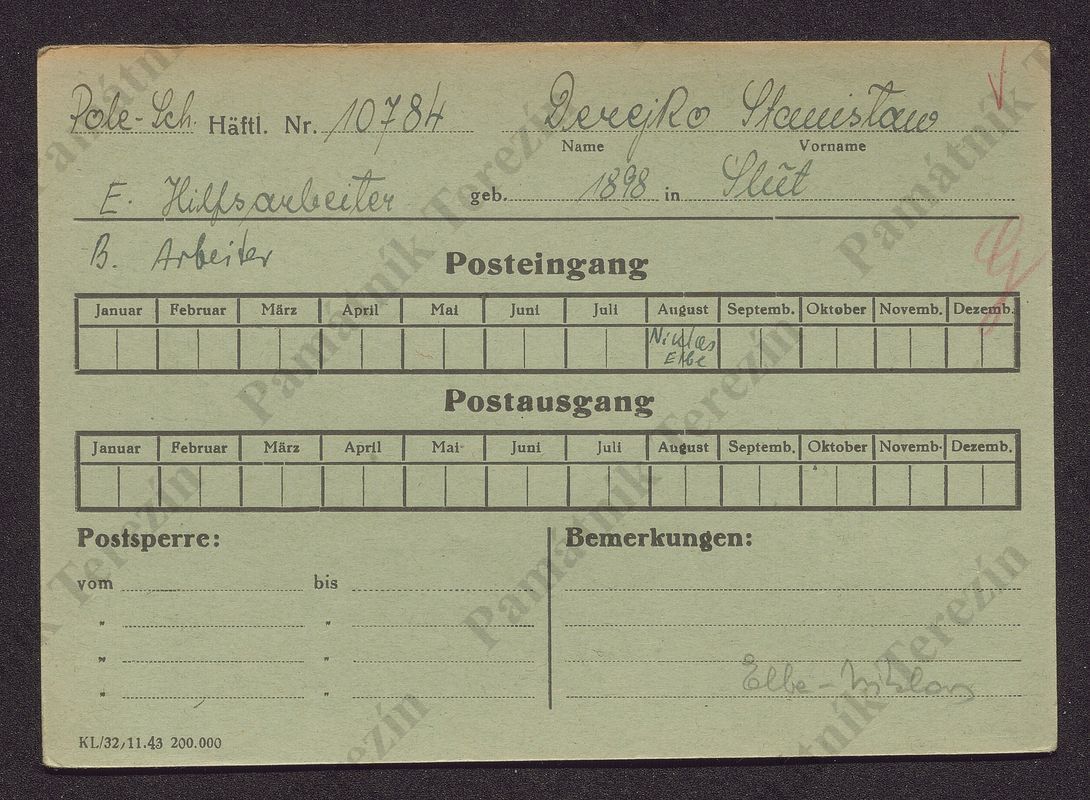 Pole-Sch. Häftl. Nr. 10784 Derejko Stanisław
Name Vorname
E. Hilfsarbeiter geb. 1898 in Slut
B. Arbeiter
Posteingang
Januar Februar März April Mai Juni Juli August Septemb. Oktober Novemb. Dezemb.
Niklas
Elbe
Postausgang
Januar Februar März April Mai Juni Juli August Septemb. Oktober Novemb. Dezemb.
Postsperre: Bemerkungen:
vom bis
" "
" "
" "
Elbe - Niklas
KL/32/11.43 200.000
Památník Terezín